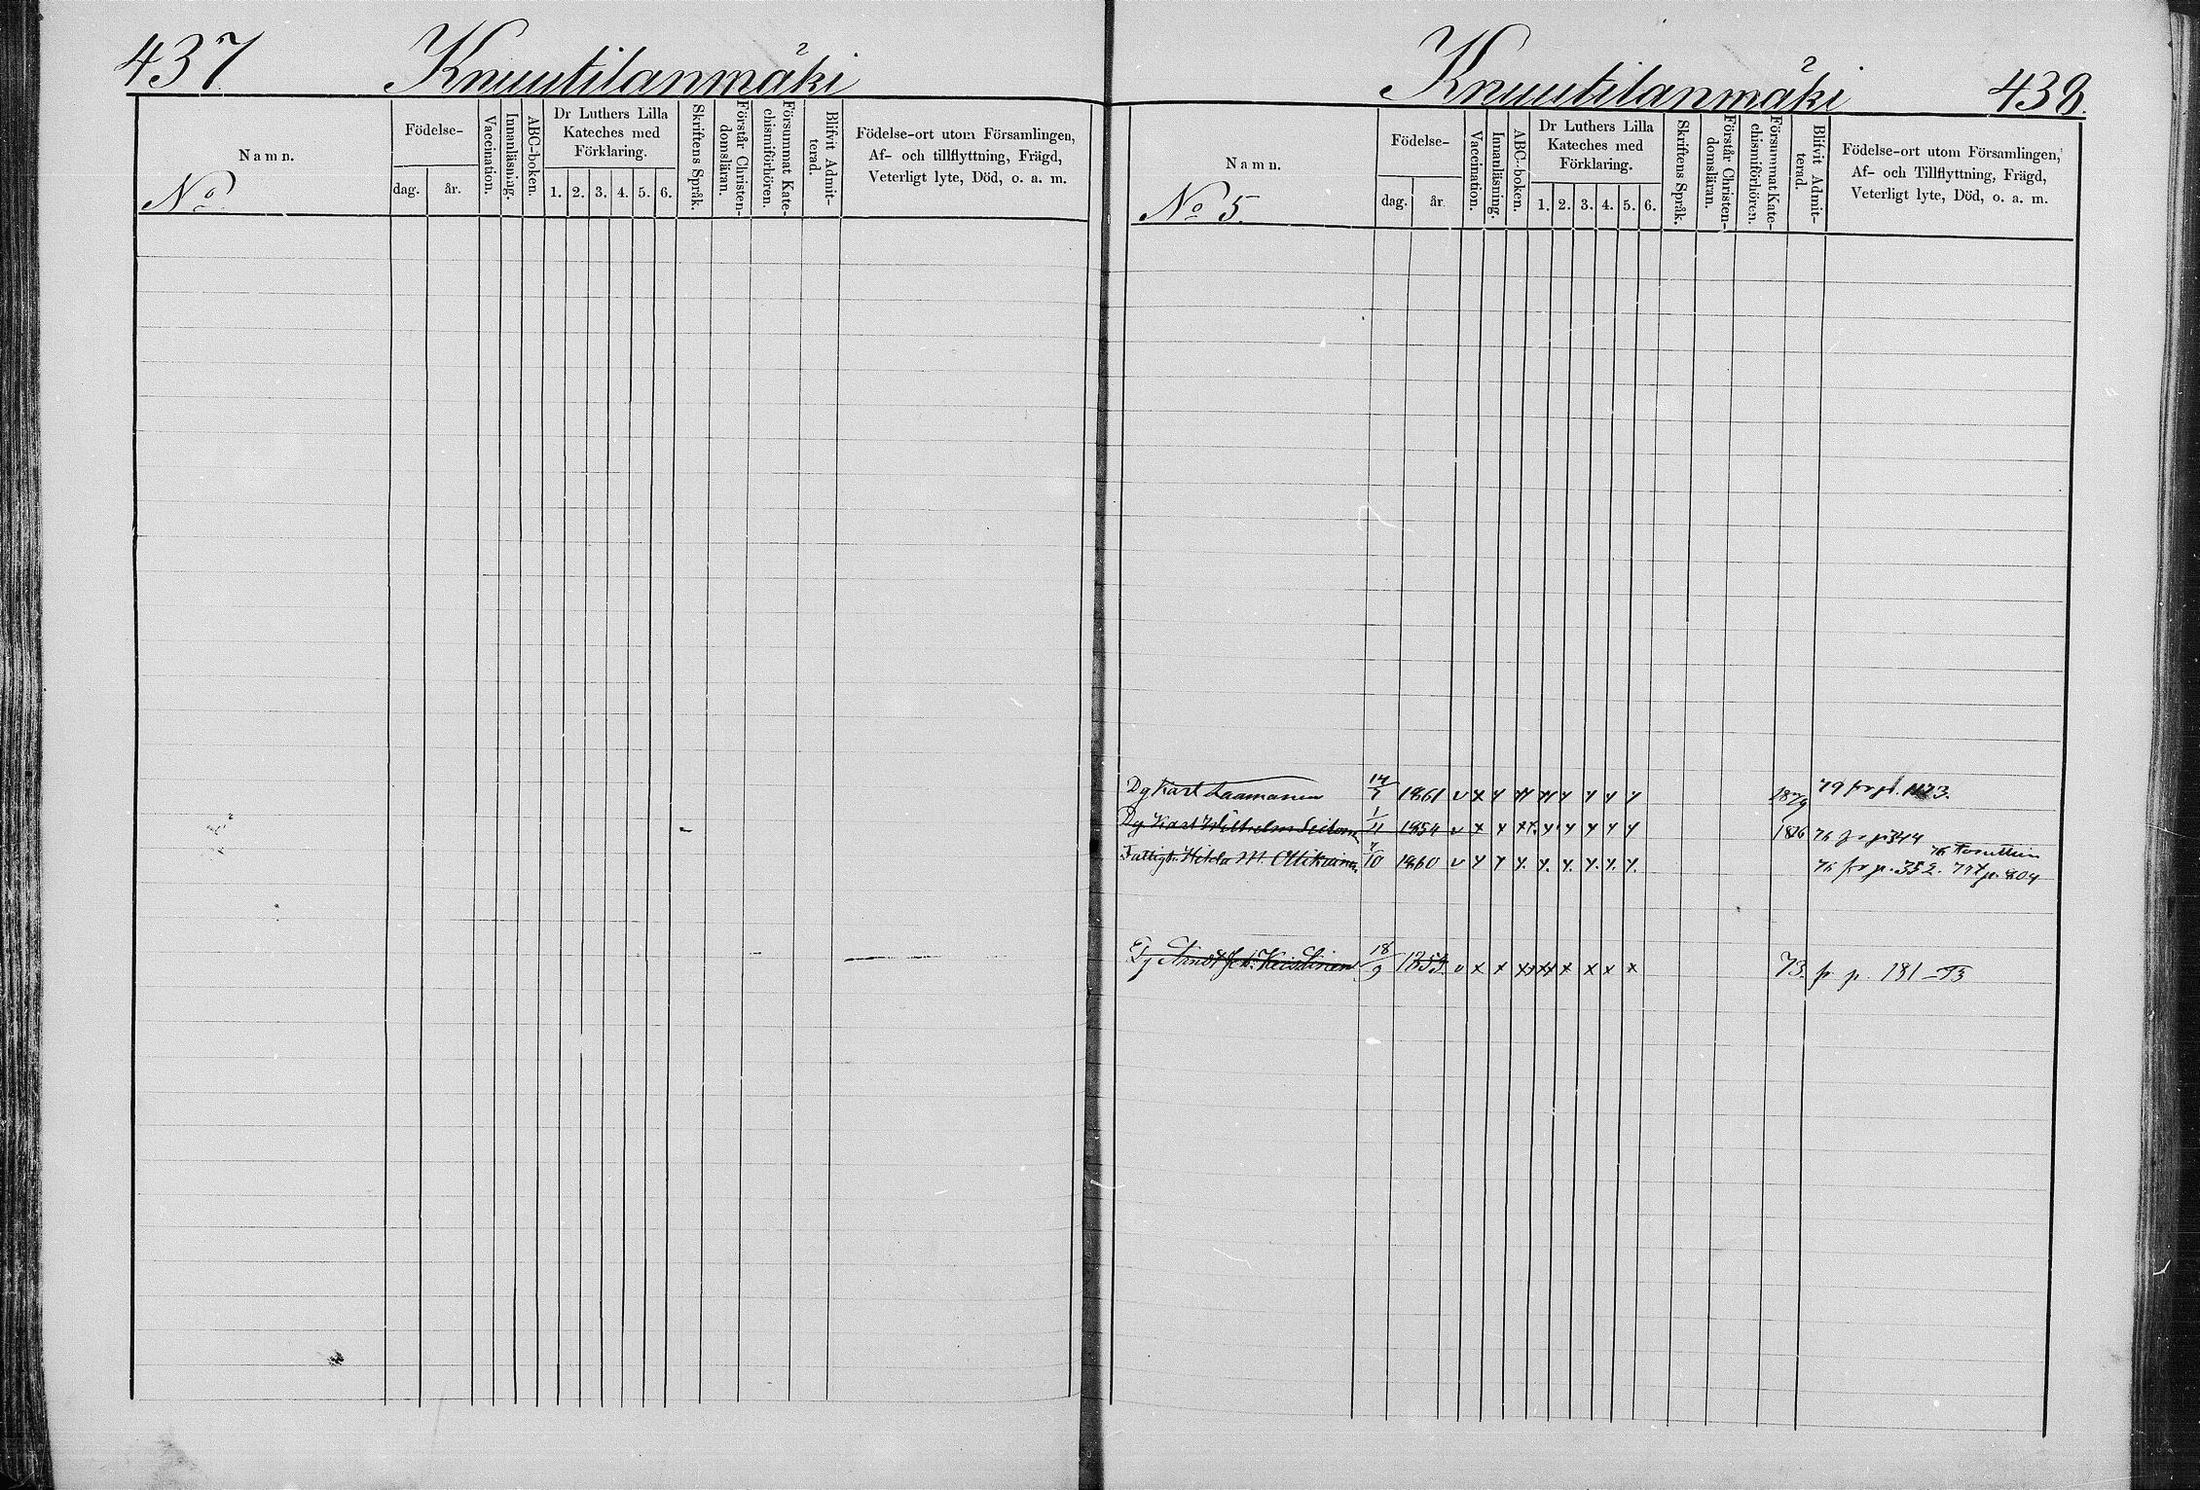 437 Knuutilanmäki
Namn.
No
Födelse-
dag. år.
Vaccination.
Innanläsning.
ABC-boken.
Dr Luthers Lilla
Kateches med
Förklaring.
1. 2. 3. 4. 5. 6.
Skriftens Språk.
Förstår Christen-
domsläran.
Försummat Kate-
chismiförhören.
Blifvit Admit-
terad.
Födelse-ort utom Församlingen,
Af- och tillflyttning, Frägd,
Veterligt lyte, Död, o. a. m.
Knuutilanmäki 438.
Namn.
No 5.
Födelse-
dag. år.
Vaccination.
Innanläsning.
ABC-boken.
Dr Luthers Lilla
Kateches med
Förklaring.
1. 2. 3. 4. 5. 6.
Skriftens Språk.
Förstår Christen-
domsläran.
Försummat Kate-
chismiförhören.
Blifvit Admit-
terad.
Födelse-ort utom Församlingen,
Af- och Tillflyttning, Frägd,
Veterligt lyte, Död, o. a. m.
Dg Karl Laamanen 14/7 1861 v x x x x x x x x 1879 79 fr p.
Dg Karl Wilhelm 1/11 1854 v x x x x x x x x 1876 76 fr p 344
Hilda M. Ollikainen 10 1860 v x x x x x x x x 76 fr p. 352. 77 t p. 804
Dg 18/9 185 v x x xx xx x x x x 73. fr p. 181